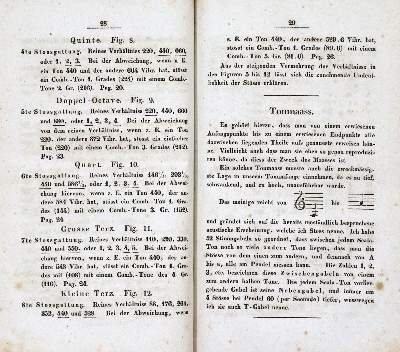 28
Quinte. Fig. 8.
4te Stossgattung. Reines Verhältniss 220, 440, 660,
oder 1, 2, 3. Bei der Abweichung, wenn z. E.
ein Ton 440 und der andere 664 Vibr. hat, stösst
ein Comb.-Ton 1. Grades (224) mit einem Comb.
Tone 2. Gr. (216). Pag. 20.
Doppel-Octave. Fig. 9.
5te Stossgattung. Reines Verhältniss 220, 440, 660
und 880, oder 1, 2, 3, 4. Bei der Abweichung
von dem reinen Verhältniss, wenn z. E. ein Ton
220, der andere 872 Vibr. hat, stösst ein einfacher
Ton (220) mit einem Comb.-Ton 3. Grades (212).
Pag. 23.
Quart. Fig. 10.
6te Stossgattung. Reines Verhältniss
440 oder 1, 2, 3, 4. Bei der Abwei-
chung hiervon, wenn z. E. ein Ton 440, der an-
dere 584 Vibr. hat, stösst ein Comb.-Ton 1. Gra-
des (144) mit einem Comb.-Tone 3. Gr. (152).
Pag. 24
Grosse Terz. Fig. 11.
7te Stossgattung. Reines Verhältniss 110, 220, 330,
440 und 550, oder 1, 2, 3, 4, 5. Bei der Abwei-
chung hiervon, wenn z. E. ein Ton 440, der an-
dere 548 Vibr. hat, stösst ein Comb.-Ton 1. Gra-
des mit (108) mit einem Comb.-Tone des 4. Gr.
(116). Pag. 24.
Kleine Terz. Fig. 12.
8te Stossgattung. Reines Verhältniss 88, 176, 264,
352, 440 und 528. Bei der Abweichung, wenn
29
z. E. ein Ton 440, der andere Vibr. hat,
stösst ein Comb.-Ton 1. Grades mit
einem Comb.-Ton 5. Gr. Pag. 26.
Aus der steigenden Vermehrung der Verhältnisse in
den Figuren 5 bis 12 lässt sich die zunehmende Undeut-
lichkeit der Stösse erklären.
Tonmaass.
Es gehört hierzu, dass man von einem erwiesenen
Anfangspunkte bis zu einem erwiesenen Endpunkte alle
dazwischen liegenden Theile aufs genaueste erweisen kön-
ne. Vielleicht auch dass man sie eben so genau reproduci-
ren könne, da diess der Zweck des Maasses ist.
Ein solches Tonmaass musste auch die zweckmässig-
ste Lage in unserm Tonumfange einnehmen, da es zu tief,
schwankend, und zu hoch, unausführbar würde.
Das meinige reicht von bis
und gründet sich auf die bereits umständlich besprochene
akustische Erscheinung, welche ich Stoss nenne. Ich habe
52 Stimmgabeln so geordnet, dass zwischen jedem Scala-
Ton noch so viele andere Töne liegen, dass man die
Stösse von dem einen zum andern, und demnach von A
bis a, alle am Pendel messen kann. Die Zahlen 1, 2,
3, etc. bezeichnen diese Zwischengabeln von einem
zum andern halben Tone. Die jedem Scala-Ton vorlie-
gende Gabel ist seine Nebengabel, und immer um
4 Stösse bei Pendel 60 (per Secunde) tiefer, weswegen
ich sie auch T-Gabel nenne.